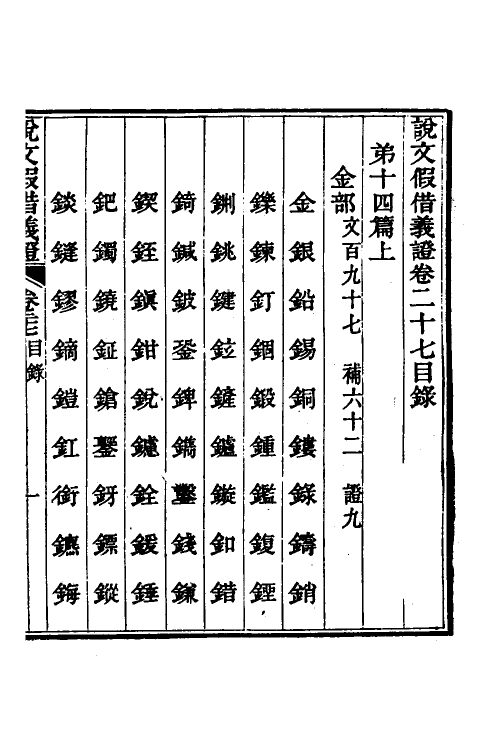 說文假借義證卷二十七目錄
弟十四篇上
金部文百九十七 補六十二 證九
金銀鉛錫銅鏤錄鑄銷
鑠鍊釘錮鍛鍾鑑鍑鋞
鉶銚鍵鉉鏟鑪鏇釦錯
錡鍼鈹銎錍鐫鏨錢鎌
鍥銍鎭鉗銳鑢銓鍰錘
鈀鐲鐃鉦鎗鏧釾鏢鏦
錟鏠鏐鏑鎧釭銜鑣鋂
說文假借義證 卷二十七目錄 一